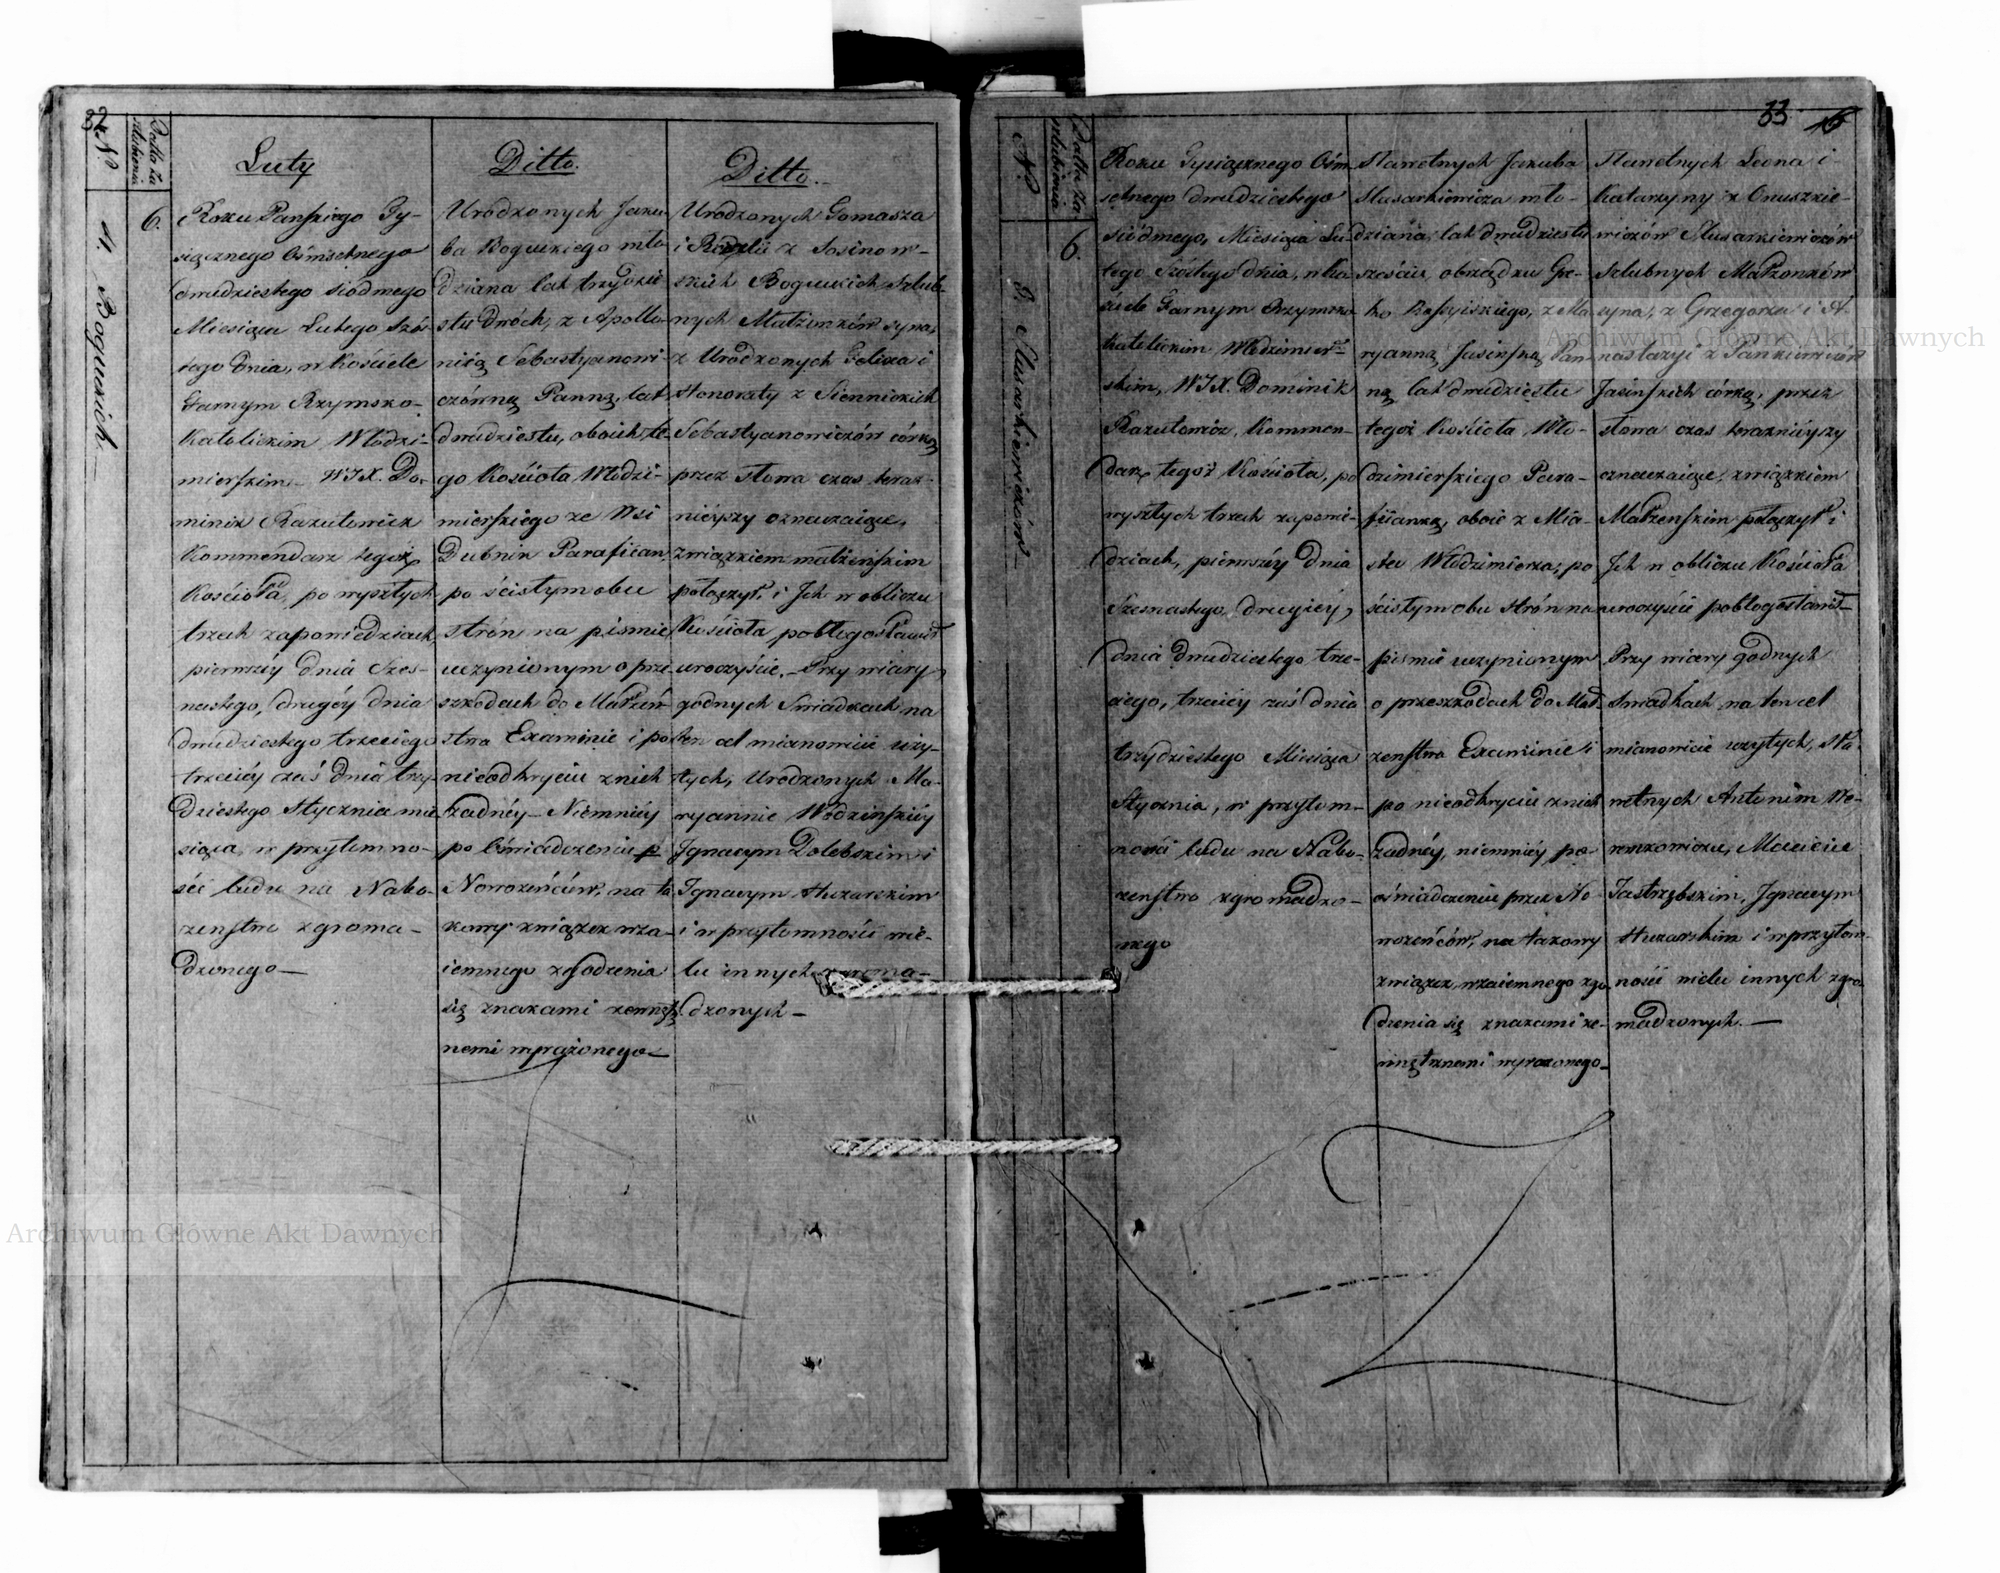 N.
Datta za
szlubienia
4. Boguckich
6.
Luty
Roku Pańskiego Ty-
siącznego Ośmsetnego
dwudziestego siódmego
Miesiąca Lutego Szós-
tego Dnia, w Kościele
Farnym Rzymsko-
Katolickim Włodzi-
mierskim WJX. Do-
minik Razutowicz
Kommendarz tegoż
Kościoła, po wyszłych
trzech zapowiedziach,
pierwszéy dnia Szes-
nastego, drugéy dnia
dwudziestego trzeciego
trzeciéy zaś dnia trzy-
dziestego Stycznia mie-
siąca, w przytomno-
ści ludu na Nabo-
żeństwo zgroma-
dzonego
Ditto.
Urodzonych Jaku-
ba Boguckiego mło-
dziana lat trzydzie
stu dwóch, z Apollo-
nią Sebastyanowi-
czówną Panną, lat
dwudziestu, oboich te-
go Kościoła Włodzi-
mierskiego ze Wsi
Dubnik Parafiian,
po ścisłym obu
strón na piśmie
uczynionym o prze
szkodach do Małżeń-
stwa Examinie i po
nieodkryciu z nich
żadnéy Niemniéy
po oświadczeniu p
Nowożeńców, na ta
kowy związek wza-
iemnego zgodzenia
się znakami zewnętrz
nemi wyrażonego
Ditto.
Urodzonych Tomasza
i Rozalii z Sosinow-
skich Boguckich Szlub-
nych Małżonków syna,
z Urodzonych Felixa i
Honoraty z Siennickich
Sebastyanowiczów córką
przez słowa czas teraz-
nieyszy oznaczaiące,
związkiem małżeńskim
połączył, i Ich w obliczu
Kościoła pobłogosławił
uroczyście. Przy wiary
godnych Swiadkach na
ten cel mianowicie uży-
tych, Urodzonych Ma-
ryannie Wodzińskiéy
Ignacym Dołebskim i
Ignacym Huzarskim
i w przytomności wie-
lu innych zgroma-
dzonych
33 16
N.
Datta za
szlubienia
5. Slusarkiewiczów
6.
Roku Tysiącznego Ośm
setnego dwudziestego
siódmego, Miesiąca Lu
tego Szóstego dnia, w Ko
ściele Farnym Rzymsko
Katolickim Włodzimier-
skim, WJX. Dominik
Razutowicz, Kommen-
darz tegoż Kościoła, po
wyszłych trzech zapowie-
dziach, pierwszéy dnia
Szesnastego, drugiéy
dnia dwudziestego trze-
ciego, trzeciéy zaś dnia
trzydziestego Miesiąca
Stycznia, w przytom-
ności ludu na Nabo-
żeństwo zgromadzo-
nego
Sławetnych Jakuba
Slusarkiewicza mło-
dziana, lat dwudziestu
sześciu, obrządku Gre-
ko Rossyiskiego, z Ma
ryanną Jasińską Pan
ną lat dwudziestu
tegoż Kościoła, Wło-
dzimierskiego Para-
fiianką, oboie z Mia-
sta Włodzimierza, po
ścisłym obu strón na
piśmie uczynionym
o przeszkodach do Mał-
żeństwa Examinie i
po nieodkryciu z nich
żadnéy, niemniéy po
oświadczeniu przez No
wożeńców, na takowy
związek, wzaiemnego zgo
dzenia się znakami ze-
wnętrznemi wyrażonego
Sławetnych Leona i
Katarzyny z Onuszkie-
wiczów Slusarkiewiczów
Szlubnych Małżonków
syna, z Grzegorza i A-
nastazyi z Jankiewiczów
Jasińskich córką, przez
słowa czas teraznieyszy
oznaczaiące, związkiem
Małżeńskim połączył i
Ich w obliczu Kościoła
uroczyście pobłogosławił
Przy wiary godnych
Swiadkach na ten cel
mianowicie użytych, Sła-
wetnych Antonim We-
remkowiczu, Macieiu
Jastrzębskim, Ignacym
Huzarskim i w przytom-
ności wielu innych zgro-
madzonych.
Archiwum Główne Akt Dawnych
Archiwum Główne Akt Dawnych